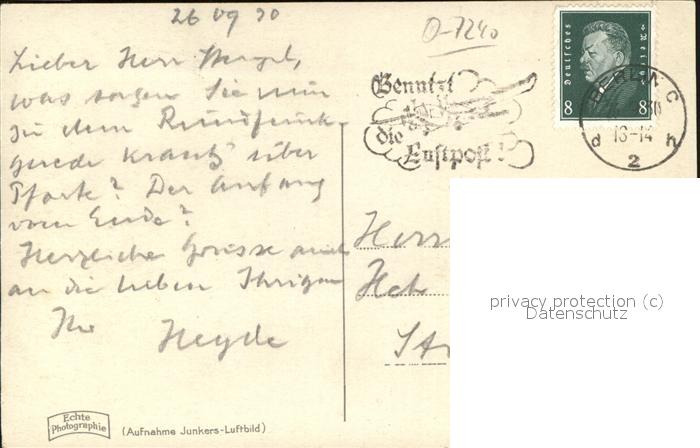 26 09 30
O-7240
Lieber Herr
was sagen Sie nun
zu dem Rundfunk-
gerede über
Der Anfang
vom Ende?
Herzliche Grüsse auch
an die lieben Ihrigen
Ihr Heyde
Benutzt
die
Luftpost!
Deutsches Reich
8 8
BERLIN C
13-14
d 2 h
Herrn
privacy protection (c)
Datenschutz
Echte
Photographie
(Aufnahme Junkers-Luftbild)